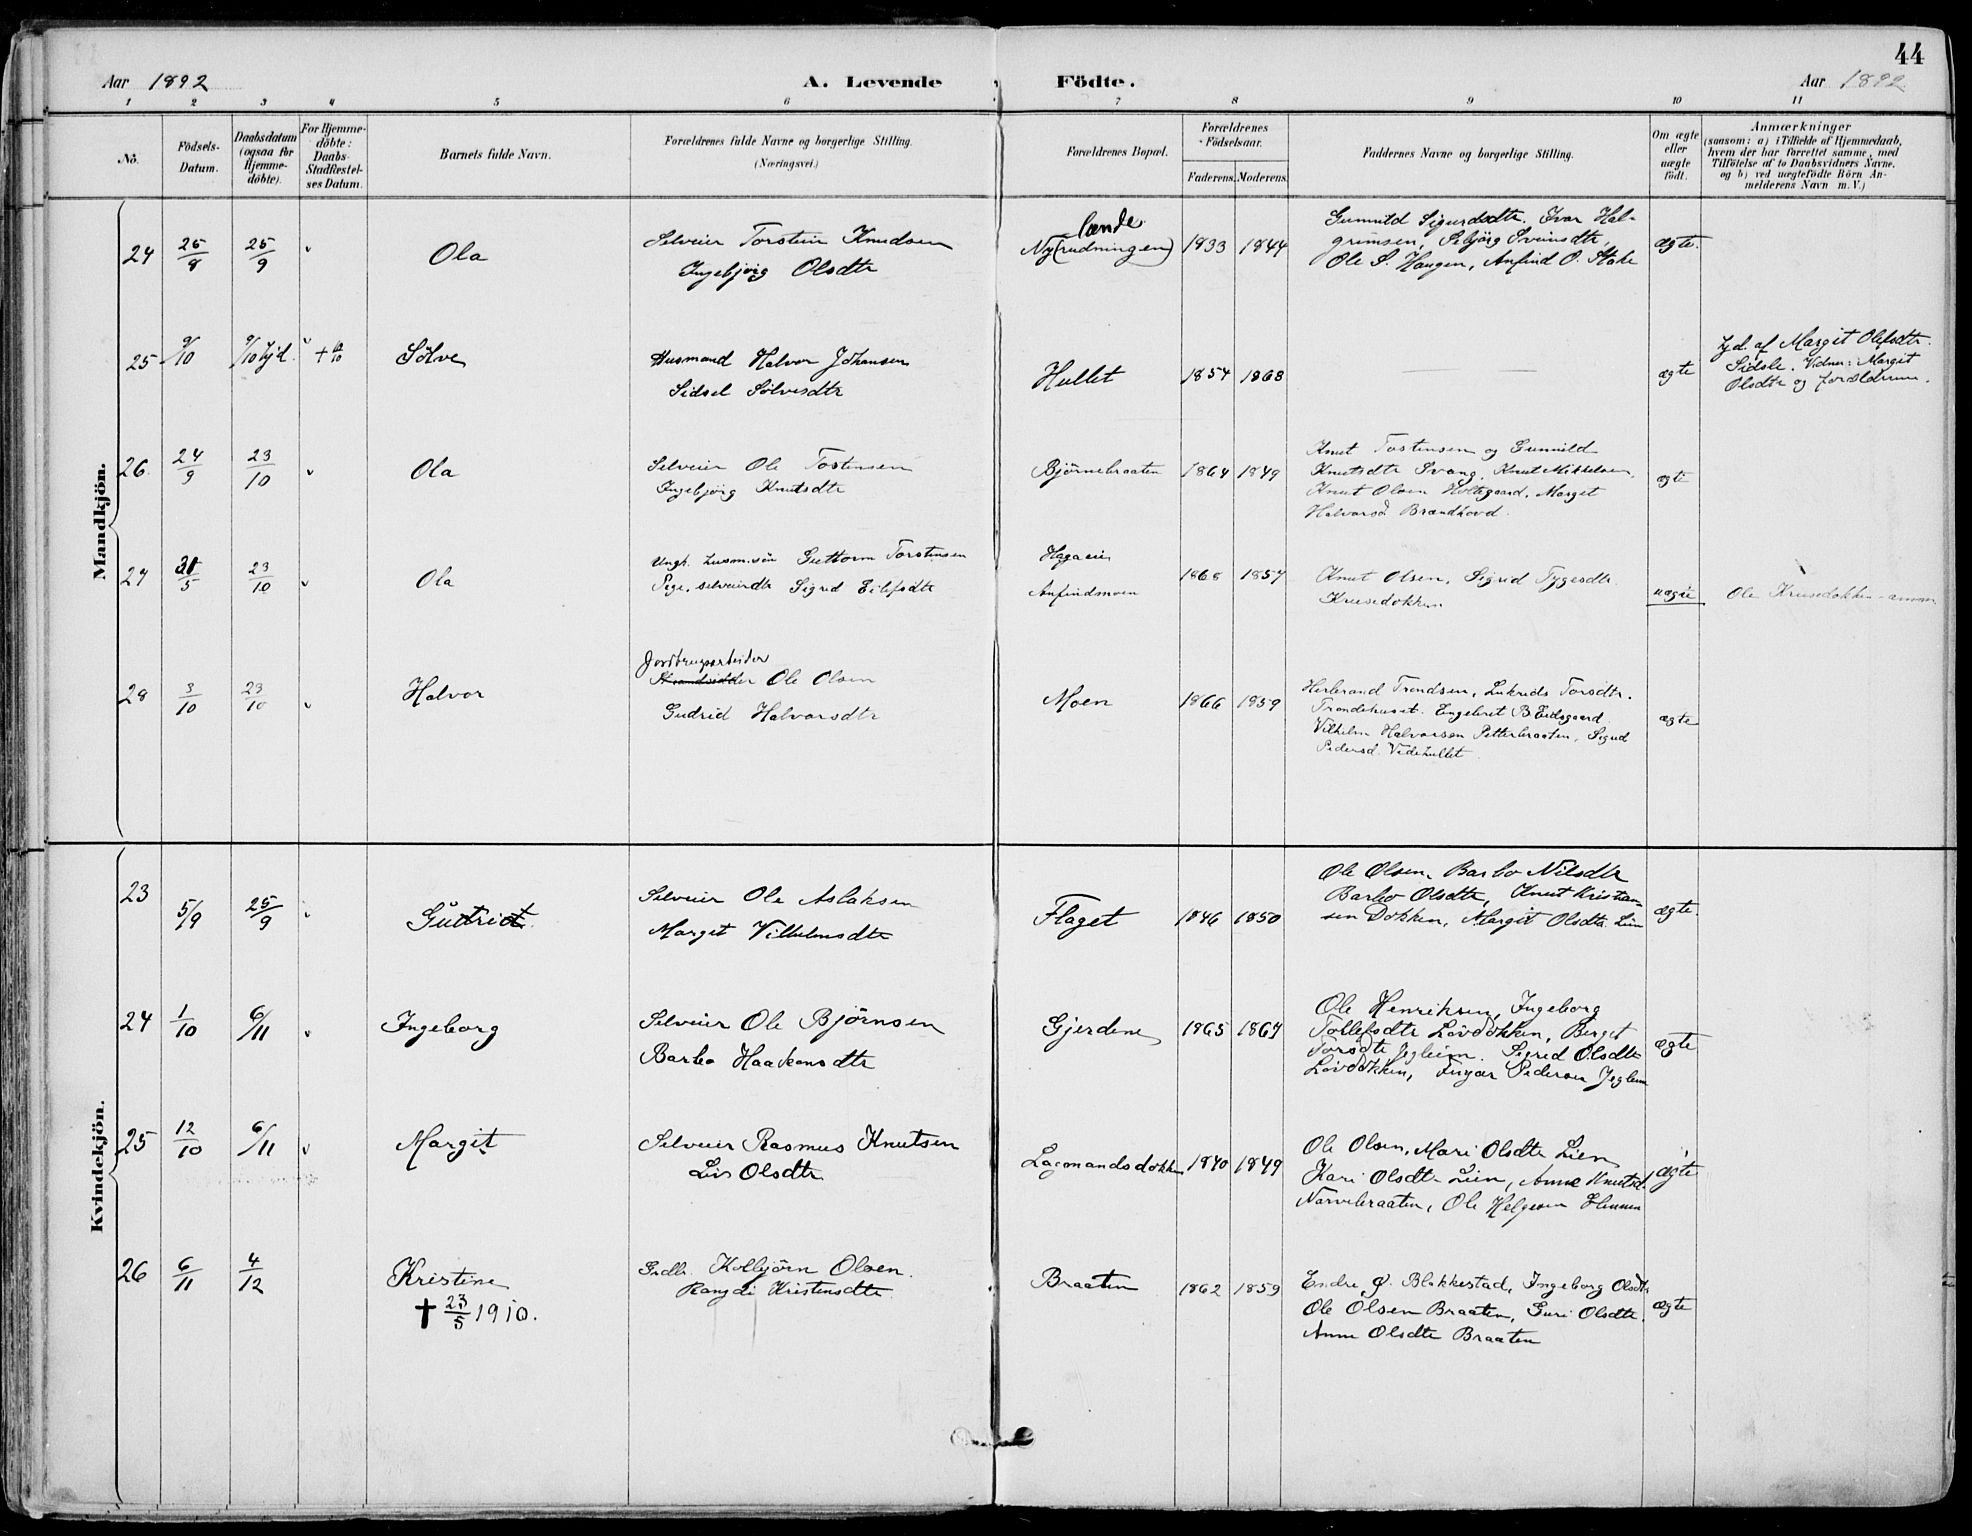 44
Aar 1892 A. Levende Födte. Aar 1892
1 2 3 4 5 6 7 8 9 10 11
No. Födsels-Datum. Daabsdatum (ogsaa for Hjemme-döbte). For Hjemme-döbte: Daabs-Stadfæstel-ses Datum. Barnets fulde Navn. Forældrenes fulde Navne og borgerlige Stilling. (Næringsvei.) Forældrenes Bopæl. Forældrenes Födselsaar. Faderens. Moderens. Faddernes Navne og borgerlige Stilling. Om ægte eller uægte födt. Anmærkninger (saasom: a) i Tilfælde af Hjemmedaab, hvem der har forrettet samme, med Tilföielse af to Daabsvidners Navne, og b) ved uægtefödte Börn An-melderens Navn m. V.)
Mandkjön.
24 25/8 25/9 Ola
Selveier Torstein Knudsen
Ingebjörg Olsdtr
lænde
Ny(rudningen) 1833 1844
Gunnild Sigurdsdtr. Ivar Hal-
grimsen, Sebjörg Sveinsdtr,
Ole S. Haugen, Anfind O. Stake
ægte.
25 9/10 9/10 hjd. + Sölve
Husmand Halvor Johansen
Sidsel Sölvesdtr
Hullet 1854 1868
ægte
hjd. af Margit Olefsdtr.
Sidsle. Vidner: Margit
Olsdtr og forældrene.
26. 24/9 23/10 Ola
Selveier Ole Tostensen
Ingebjörg Knutsdtr
Björnebraaten 1864 1849
Knut Tostensen og Gunnild
Knutsdtr Svang, Knut Mikkelsen,
Knut Olsen Holtegaard, Marget
Halvorsd Brændhovd.
ægte
27 31/5 23/10 Ola
Ungk. husm.sön Guttorm Torstensen
Pige, selveierdtr Sigrid Eilefsdtr
Hagaeie
Anfindsmoen
1868 1857
Knut Olsen, Sigrid Tygesdtr.
Krusedokken
uægte
Ole Krusedokken
28 3/10 23/10 Halvor
Jordbrugsarbeider
Ole Olsen
Gudrid Halvorsdtr
Moen 1866 1859
Herbrand Trondsen, Lukrids Torsdtr.
Trondehuset. Engebret B Eidsgaard
Vilhelm Halvorsen Petterbraaten, Sigrid
Pedersd. Videhullet
ægte
Kvindekjön.
23 5/9 25/9 Guttriot.
Selveier Ole Aslaksen
Margit Vilhelmsdtr
Flaget 1846 1850
Ole Olsen, Barbo Nilsdtr
Barbo Olsdtr, Knut Kristian-
sen Dokken, Margit Olsdtr. Lien
ægte.
24 1/10 6/11 Ingeborg
Selveier Ole Björnsen
Barbo Haakonsdtr
Gjerdene 1865 1864
Ole Henriksen, Ingeborg
Tollefsdtr Lövdokken, Berget
Torsdtr Jegleim. Sigrid Olsdtr
Lövdokken, Pedersen Jegleim
ægte
25 12/10 6/11 Margit
Selveier Rasmus Knutsen
Liv Olsdtr
Lagmandsdokken 1840 1849
Ole Olsen, Mari Olsdtr Lien
Kari Olsdtr Lien, Anne Knutsd.
Narvebraaten, Ole Helgesen
ægte
26 6/11 4/12 Kristine
† 23/5 1910.
Grdbr. Kolbjörn Olsen.
Rangdi Kristensdtr
Braaten 1862 1859
Endre Ø. Blakkestad, Ingeborg Olsdtr
Ole Olsen Braaten, Guri Olsdtr,
Anne Olsdtr Braaten
ægte